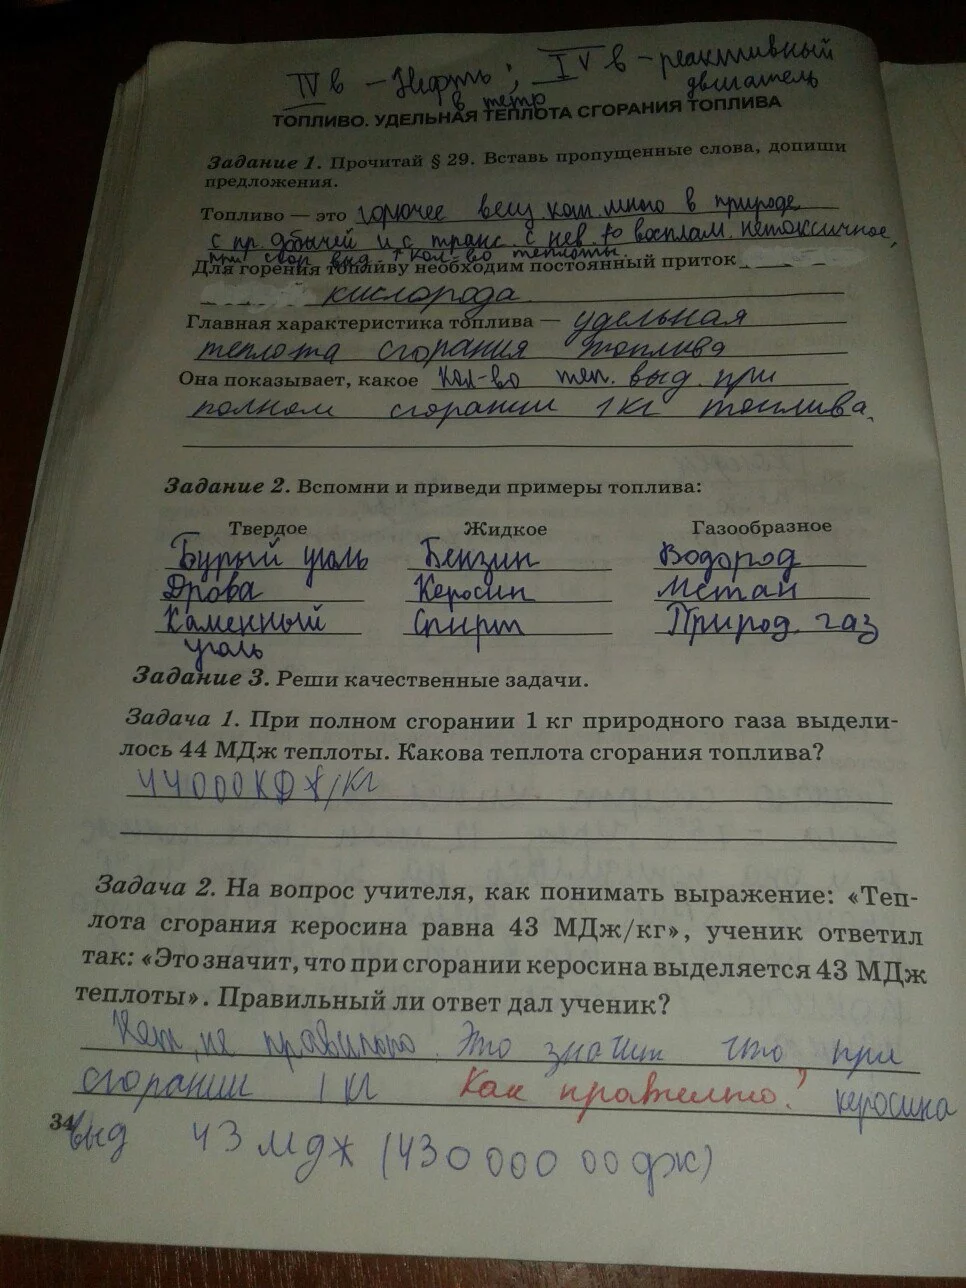 IV в – Нефть ; IV в – реактивный
в тетр двигатель
ТОПЛИВО. УДЕЛЬНАЯ ТЕПЛОТА СГОРАНИЯ ТОПЛИВА
Задание 1. Прочитай § 29. Вставь пропущенные слова, допиши
предложения.
Топливо — это горючее вещ. кот. много в природе
с пр. добычей и с транс. с нев. to восплам. нетоксичное,
при сгор выд. ↑ кол-во теплоты.
Для горения топливу необходим постоянный приток
кислорода
Главная характеристика топлива — удельная
теплота сгорания топлива
Она показывает, какое кол-во теп. выд. при
полном сгорании 1 кг топлива.
Задание 2. Вспомни и приведи примеры топлива:
Твердое Жидкое Газообразное
Бурый уголь Бензин Водород
Дрова Керосин Метан
Каменный Спирт Природ. газ
уголь
Задание 3. Реши качественные задачи.
Задача 1. При полном сгорании 1 кг природного газа выдели-
лось 44 МДж теплоты. Какова теплота сгорания топлива?
44000 КДж/кг
Задача 2. На вопрос учителя, как понимать выражение: «Теп-
лота сгорания керосина равна 43 МДж/кг», ученик ответил
так: «Это значит, что при сгорании керосина выделяется 43 МДж
теплоты». Правильный ли ответ дал ученик?
Нет, не правильно. Это значит что при
сгорании 1 кг Как правильно? керосина
34
выд 43 мдж (430 000 00 дж)